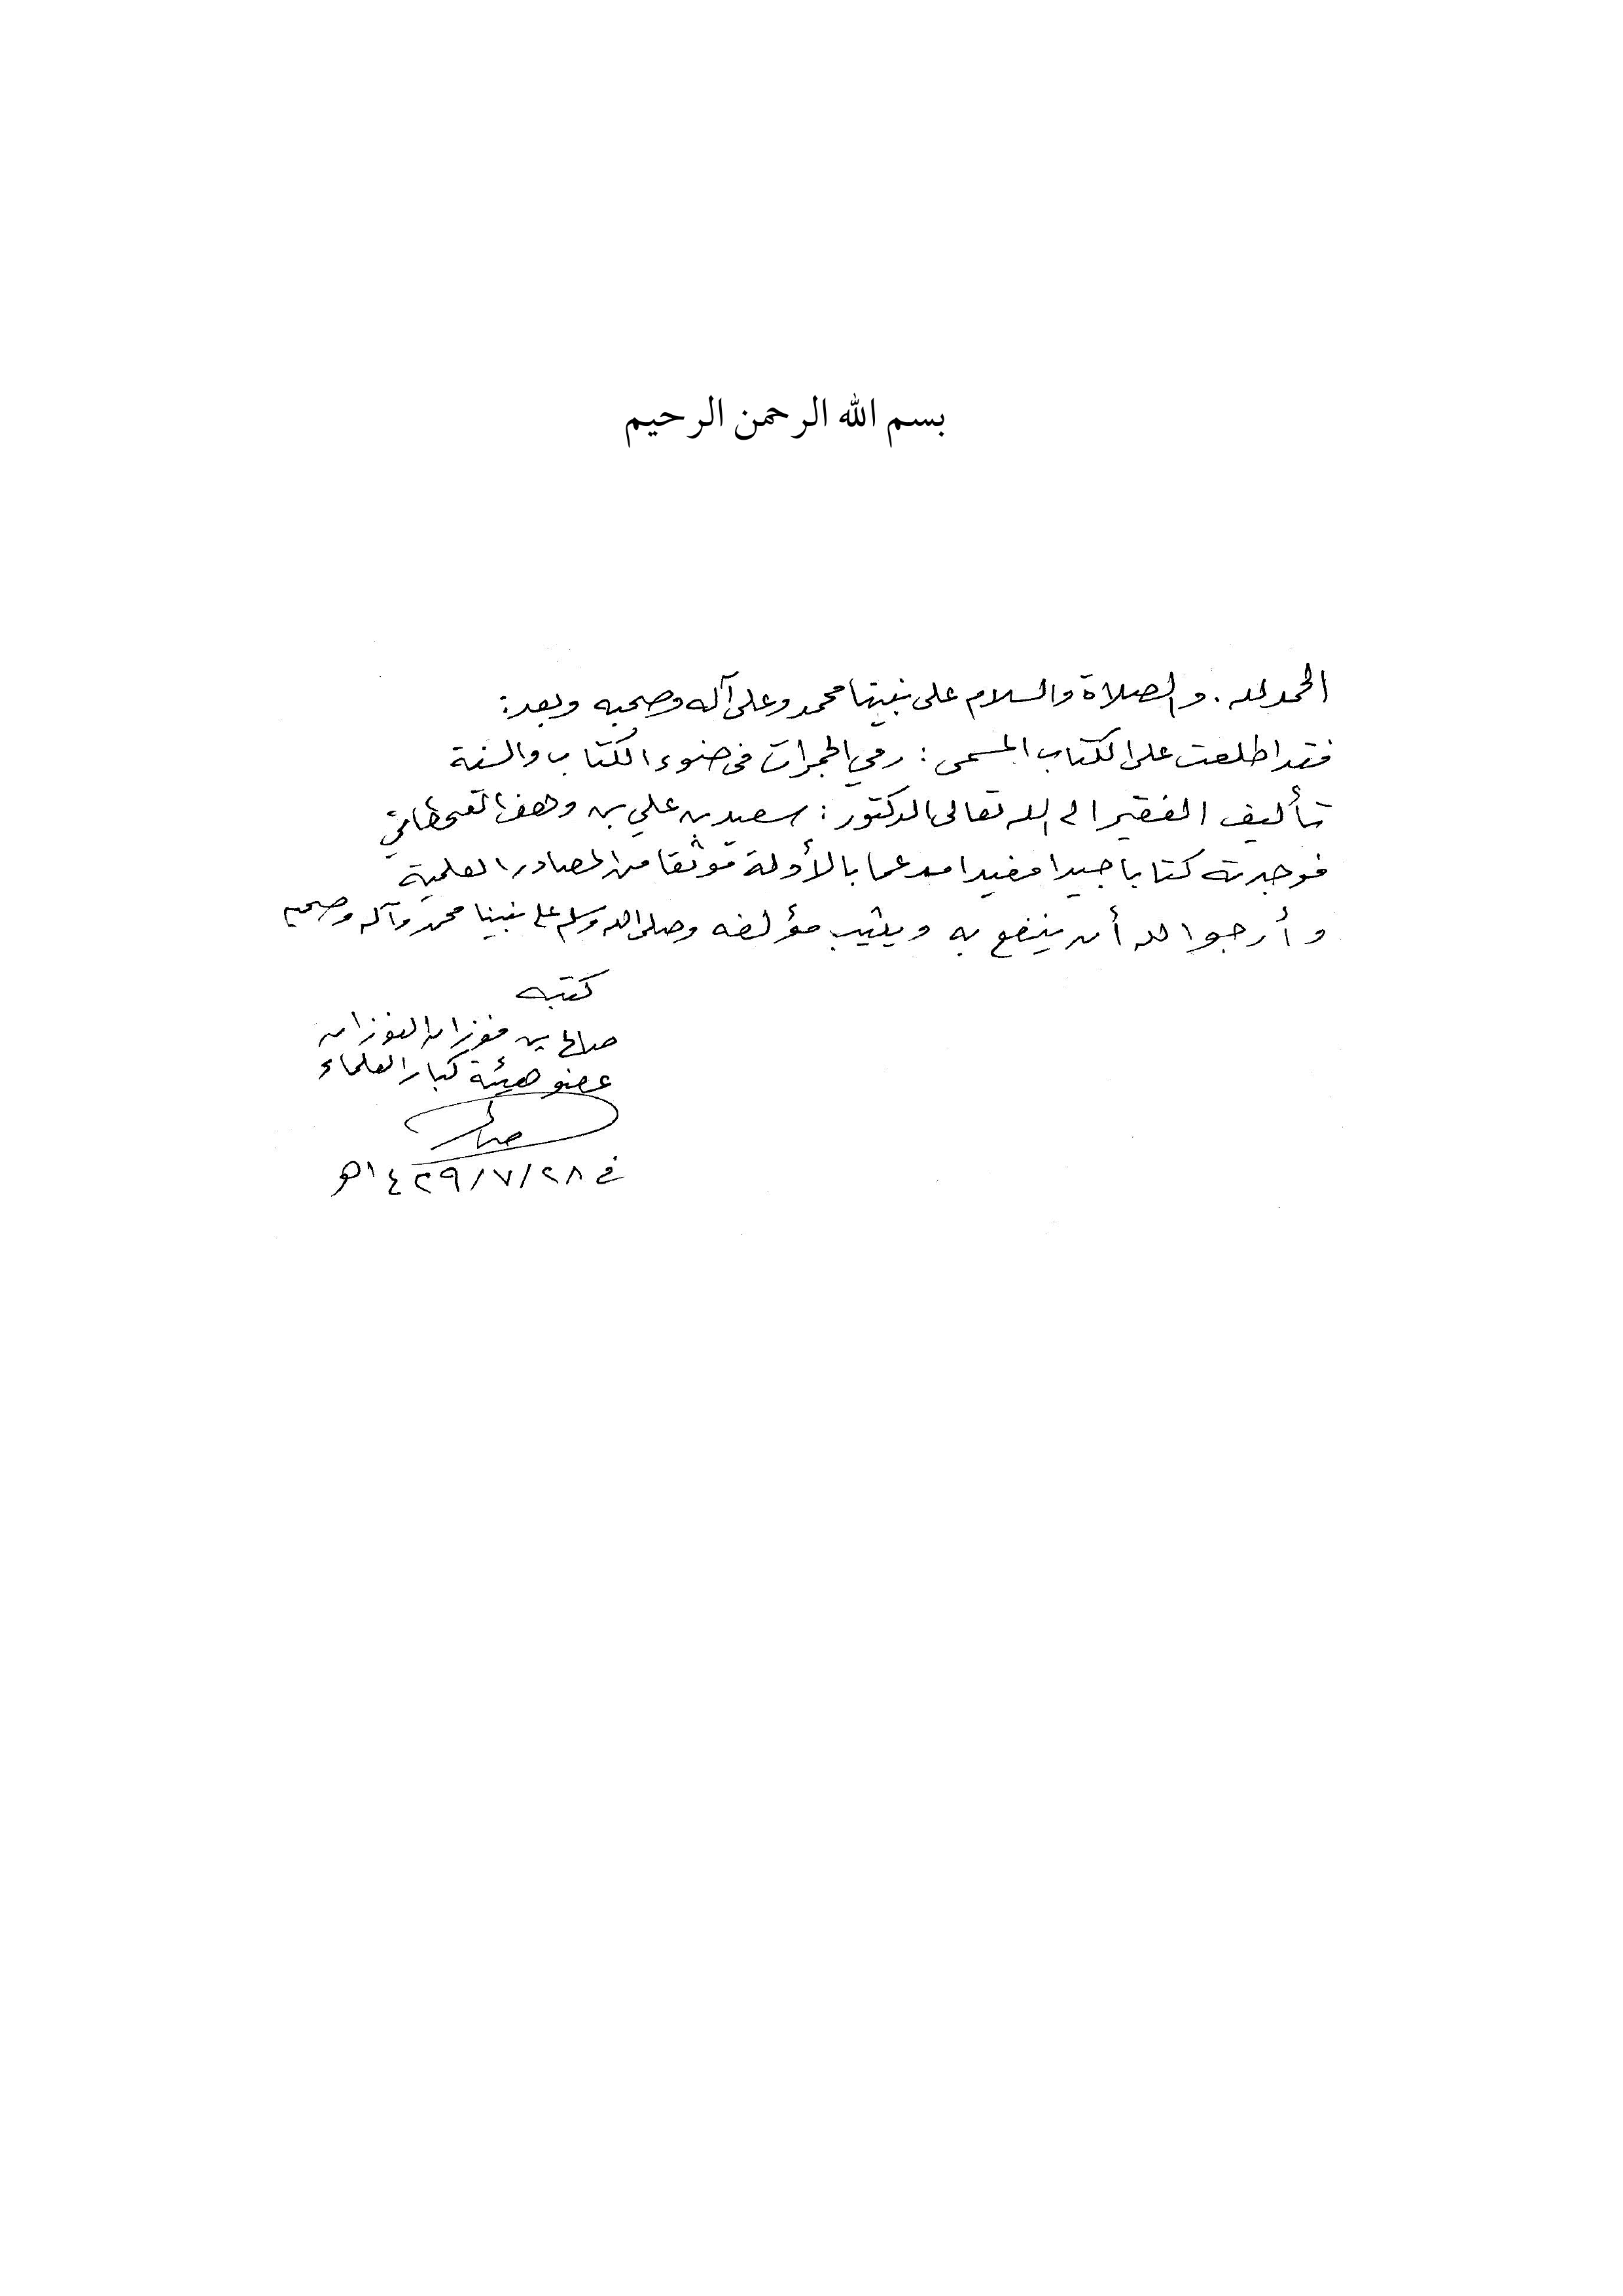 بسم الله الرحمن الرحيم
الحمد لله . والصلاة والسلام على نبينا محمد وعلى آله وصحبه وبعد :
فقد اطلعت على الكتاب المسمى : رمي الجمرات في ضوء الكتاب والسنة
تأليف الفقير إلى الله تعالى الدكتور : سعيد بن علي بن وهف القحطاني
فوجدته كتابا جيدا مفيدا مدعما بالأدلة موثقا من المصادر العلمية
وأرجوا الله أن ينفع به ويثيب مؤلفه وصلى الله وسلم على نبينا محمد وآله وصحبه
كتبه
صالح بن فوزان الفوزان
عضو هيئة كبار العلماء
صالح
في ٢٨/٧/١٤٢٩هـ